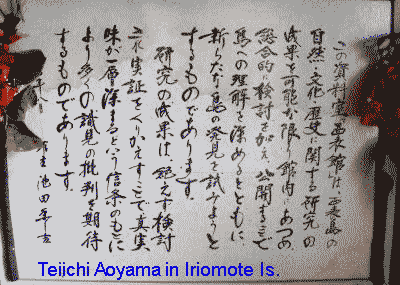 この資料室西表館は、西表島の
自然、文化、歴史に関する研究の
成果を可能な限り館内にあつめ
総合的に検討を加え公開することで
島への理解を深めるとともに
新らたな島の発見を試みようと
するものであります。
研究の成果は、絶えず検討
され実証をくりかえすことで真実
味が一層深まるという信条のもとに
より多くの識見の批判を期待
するものであります。
Teiichi Aoyama in Iriomote Is.